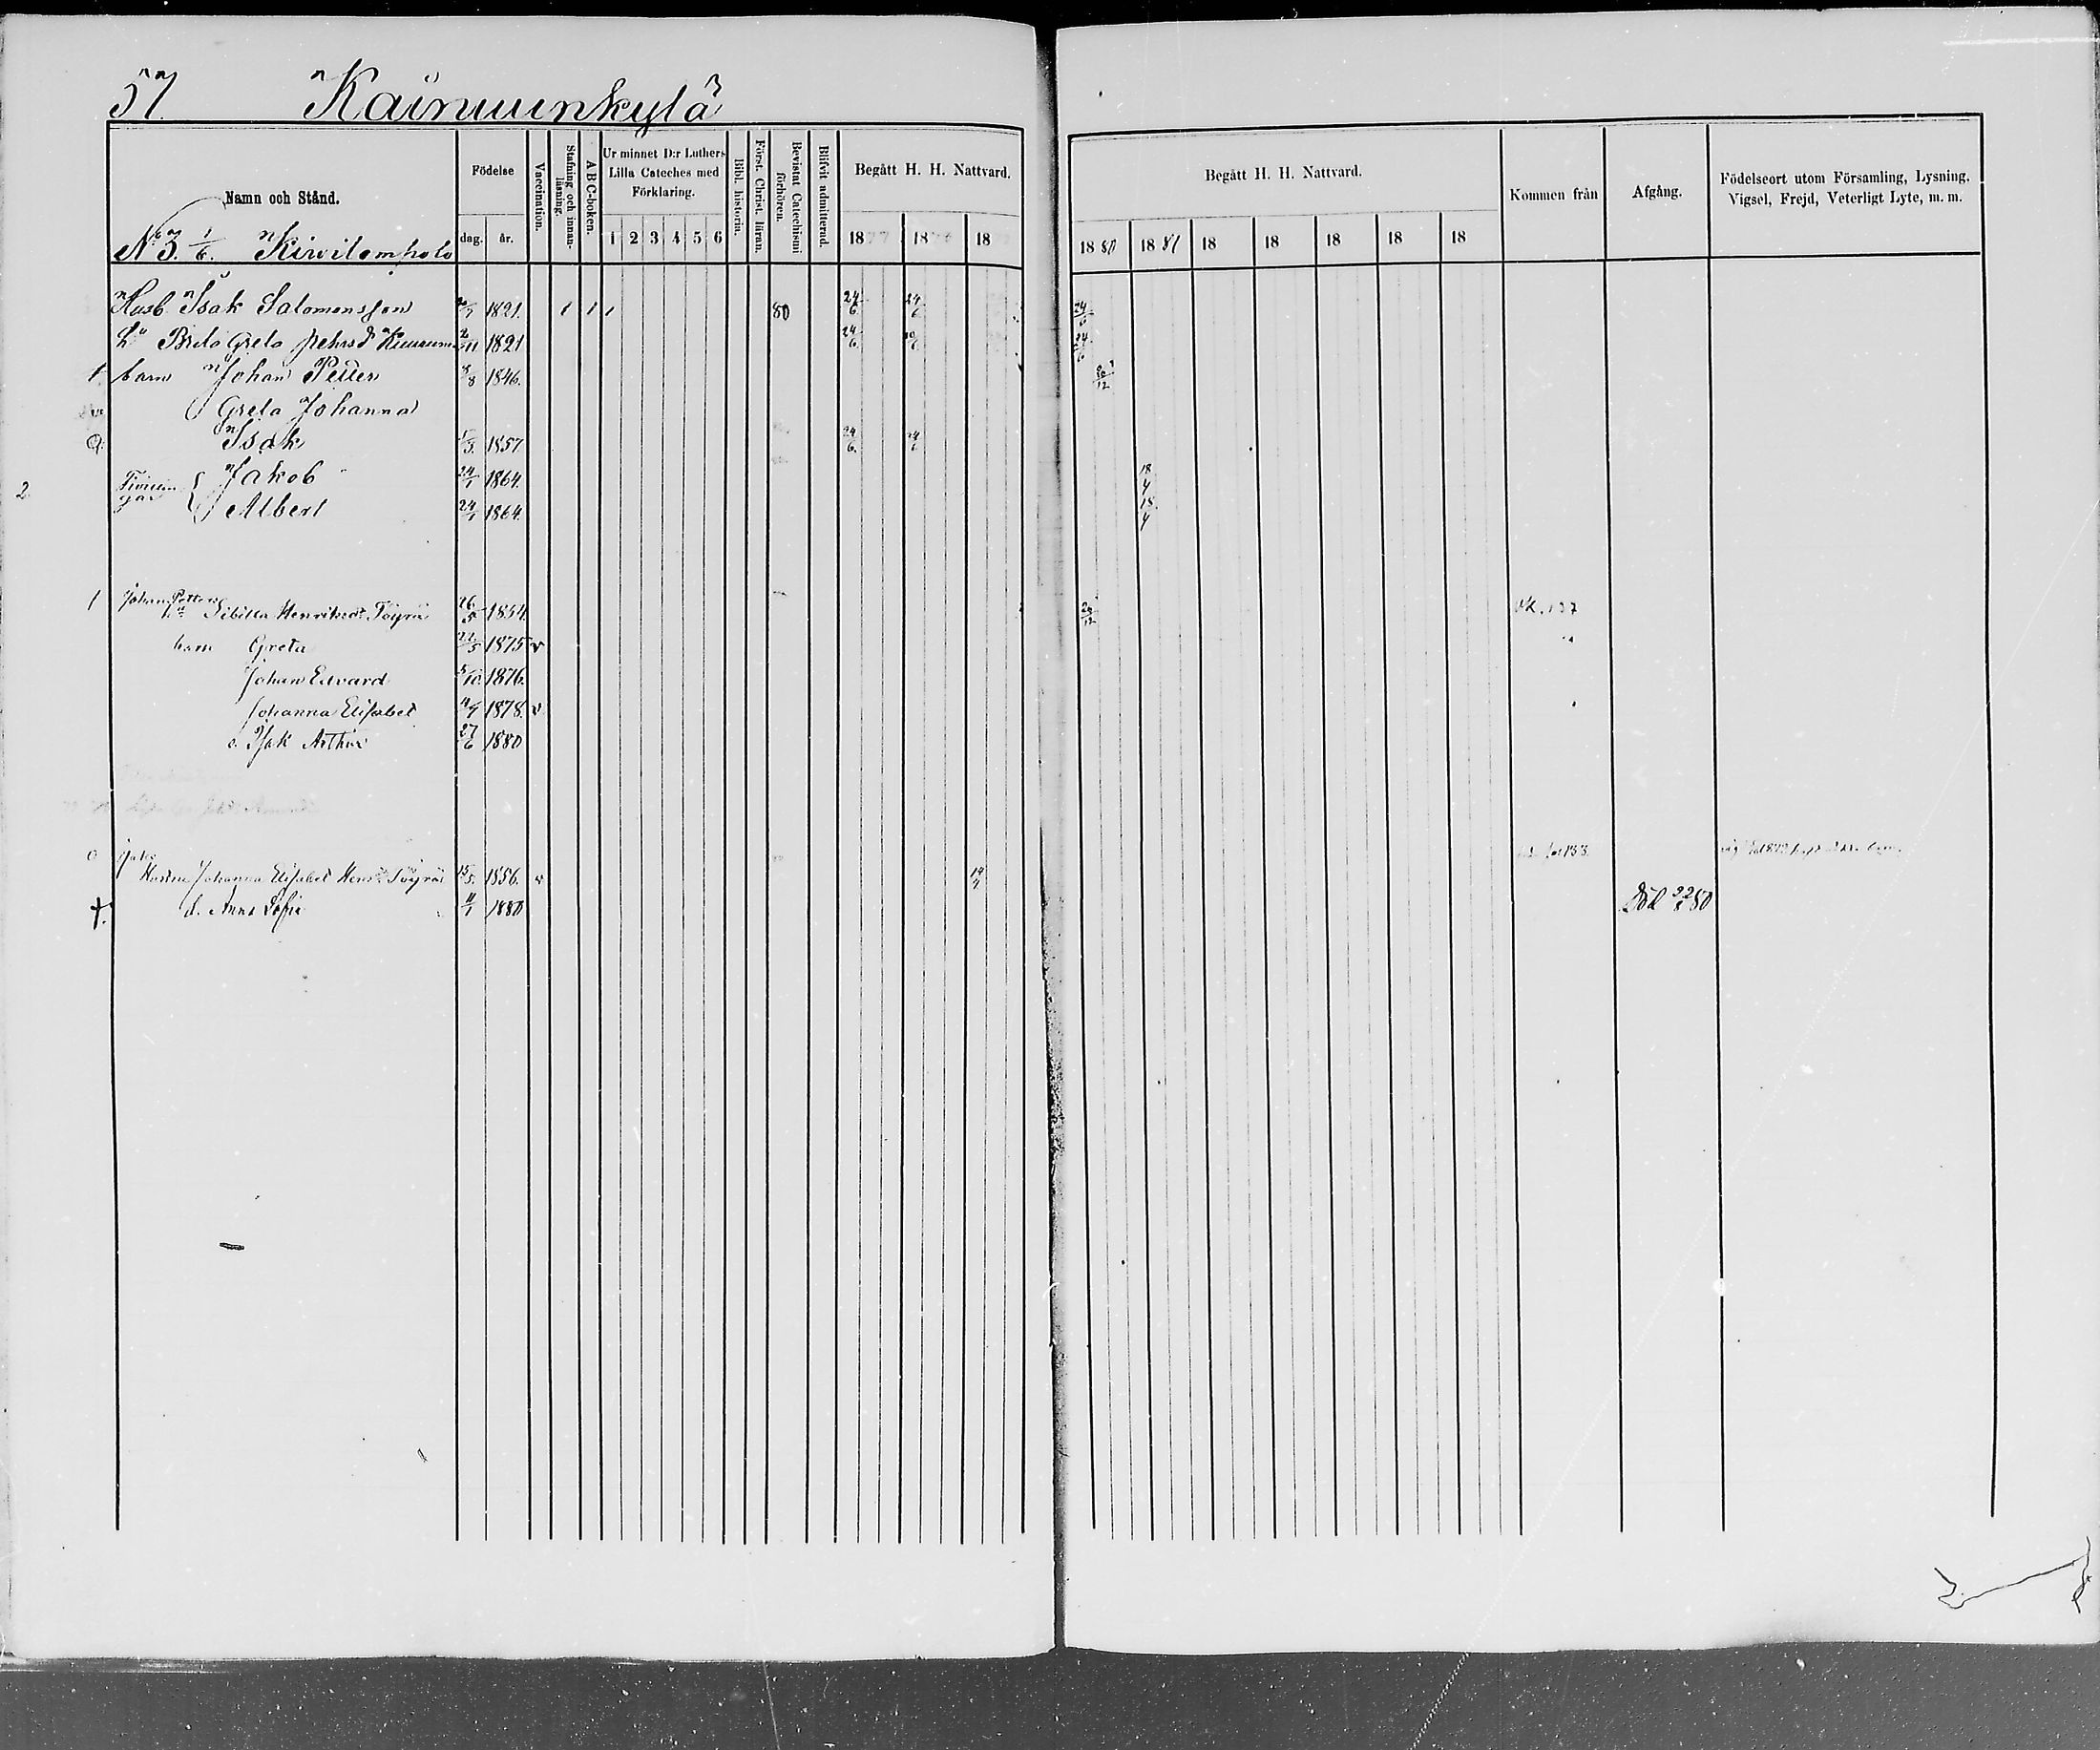 57. Kainuunkylä
Namn och Stånd.
Födelse
dag. år.
Vaccination.
Stafning och innanläsning.
A B C-boken.
Ur minnet D:r Luthers Lilla Cateches med Förklaring.
1 2 3 4 5 6
Bibl. historia.
Först. Christ. läran.
Bevistat Catechismi förhören.
Blifvit admitterad.
Begått H. H. Nattvard.
18 18 18
Begått H. H. Nattvard.
18 80 18 81 18 18 18 18 18
Kommen från
Afgång.
Födelseort utom Församling, Lysning, Vigsel, Frejd, Veterligt Lyte, m. m.
No 3. 1/6.
Husb. Isak Salomonsson 1821. 1 1 1 80 24/6 24/6 24/6
hu Brita Greta Pehrsd 1821 24/6 24/6
1 barn Johan Petter 8/8 1846.
Greta Johanna
Isak 1857. 24/6 24/6
2 Jakob 24/1 1864. 18/4
Albert 24/1 1864. 18/4
1 Johan Petters
hu Sibilla Henriksdr Töyrä 26/5 1854.
barn Greta 22/5 1875 v
Johan Edvard 5/10 1876.
Johanna Elisabet 1878. v
s. Isak Arthur 27/6 1880
Hustru Johanna Elisabet Henr. Töyrä 15/5 1856. v
†. d. Anna Sofia 11/1 1880 Död 22/8 80